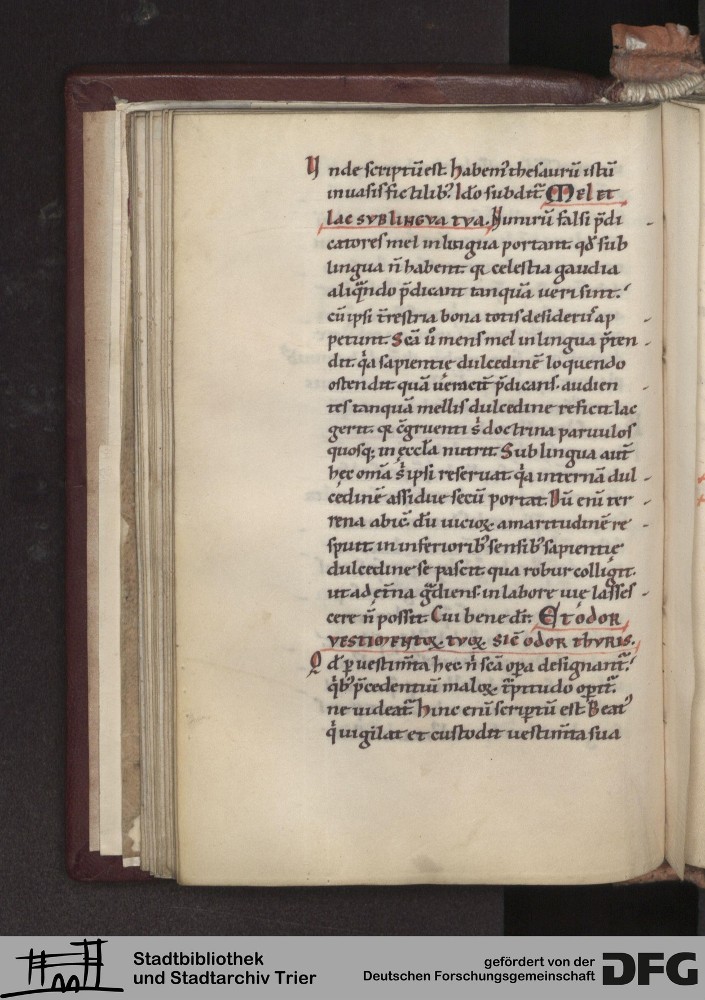 Unde scriptū est. habem᷒ thesaurū istū
in uasis fictilib᷒. Ido subdit᷑. Mel et
lac sub lingua tua. Nimirū falsi p̄di
catores mel in lingua portant. qd̄ sub
lingua n̄ habent. qꝛ celestia gaudia
aliq̄ndo p̄dicant tanquā ueri sint.
cū ipsi t̄restria bona totis desideriis ap
petunt. Sc̄a u̇ mens mel in lingua p̄ten
dit. q̇a sapientie dulcedinē loquendo
ostendit. quā
p̄dicans. audien
tes tanquā mellis dulcedine reficit. lac
gerit. qꝛ ꝯgruenti s̄ doctrina paruulos
quosq; in ęccl̄a nutrit. Sub lingua aut̄
hęc om̄a s̄ ipsi reseruat. q̇a internā dul
cedinē assidue secū portat. Dū eni ter
rena abic̄. dū uicioꝝ amaritudinē re
spuit. in inferiorib᷒ sensib᷒ sapientię
dulcedine se pascit. qua robur colligit.
ut ad et̄na gᵃdiens. in labore uie lasses
cere n̄ possit. Cui bene dr̄. Et odor
uestimentoꝝ tuoꝝ. sic̄ odor thuris.
Qd̄ ꝑ uestim̄ta hec. n̄ sc̄a oꝑa designant᷑.
q̇b᷒ p̄cedentiū maloꝝ t̄pitudo oꝑit᷑.
ne uideat᷑. Hinc eni scriptū est. Beat᷒
q̇ uigilat et custodit uestim̄ta sua
Stadtbibliothek
und Stadtarchiv Trier
gefördert von der
Deutschen Forschungsgemeinschaft
DFG